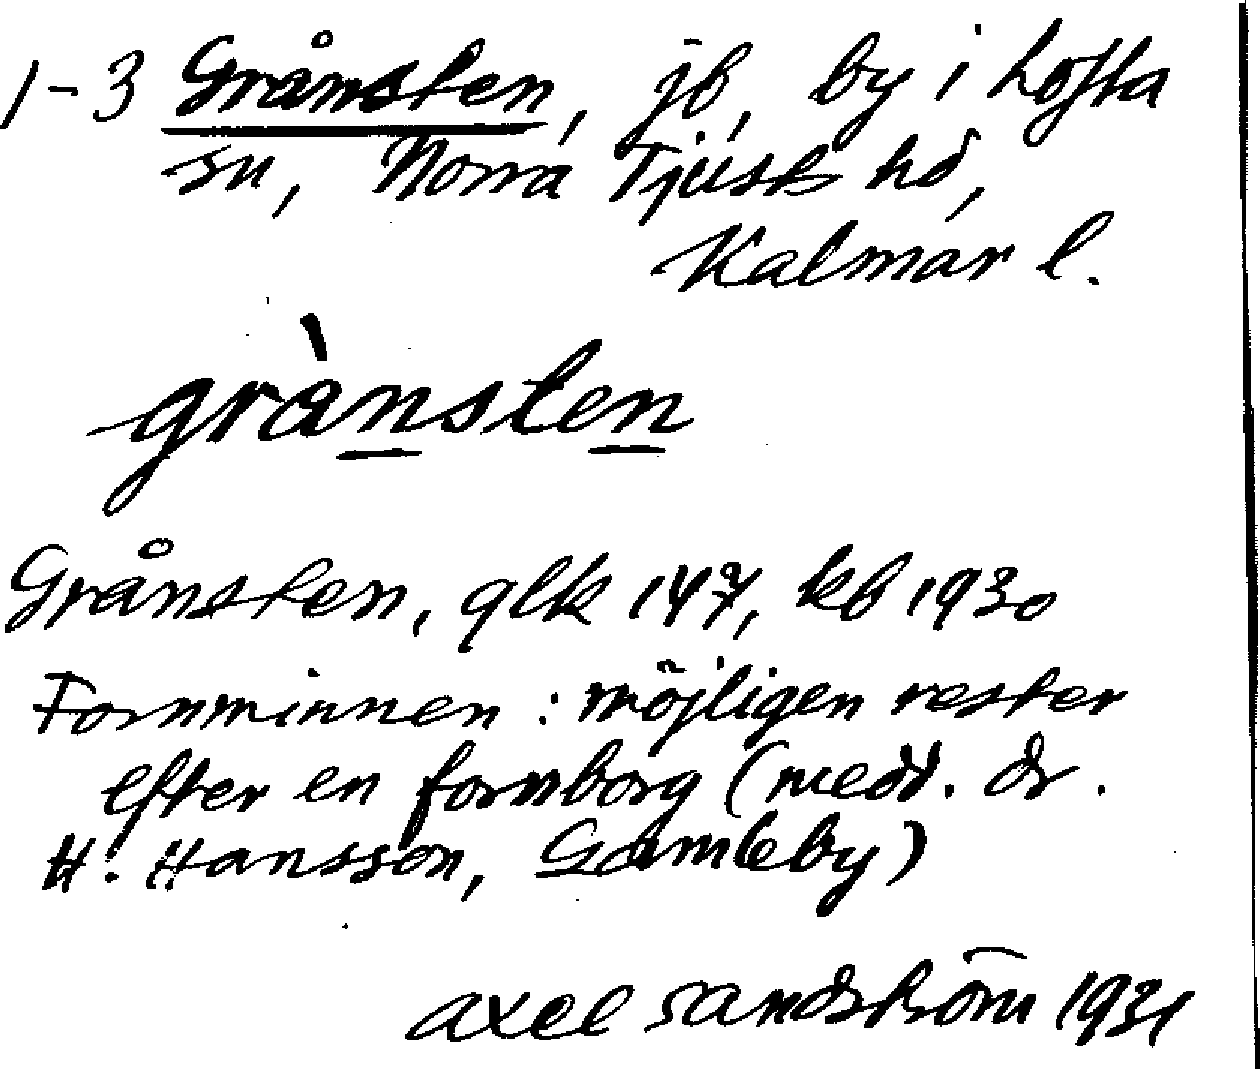 1-3 Grånsten, jb, by i Lofta
sn, Norra Tjusts hd,
Kalmar l.
grànsten
Grånsten, glk 147, kb 1930
Fornminnen: möjligen rester
efter en fornborg (medd. dr.
H. Hansson, Gamleby)
Axel Sandström 1931